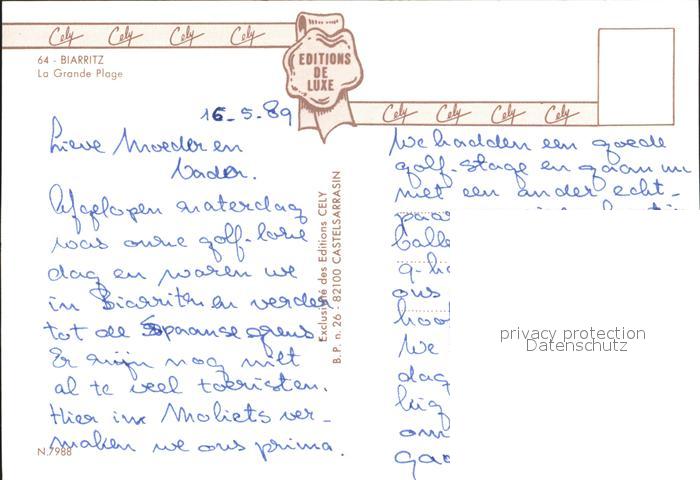 Cely Cely Cely Cely
64 - BIARRITZ
La Grande Plage
EDITIONS
DE
LUXE
Cely Cely Cely Cely
16-5-89
Lieve Moeder en
Vader.
Afgelopen zaterdag
was onze golf-loze
dag en waren we
in Biarritz en verder
tot de Spaanse grens.
Er zijn nog niet
al te veel toeristen.
Hier in Moliets ver-
maken we ons prima.
N.7988
Exclusivité des Editions CELY
B.P. n. 26 - 82100 CASTELSARRASIN
We hadden een goede
golf-stage en gaan nu
met een ander echt-
paar
balle
9-ho
ons
hoo
We
dag
lig
om
gao
privacy protection
Datenschutz